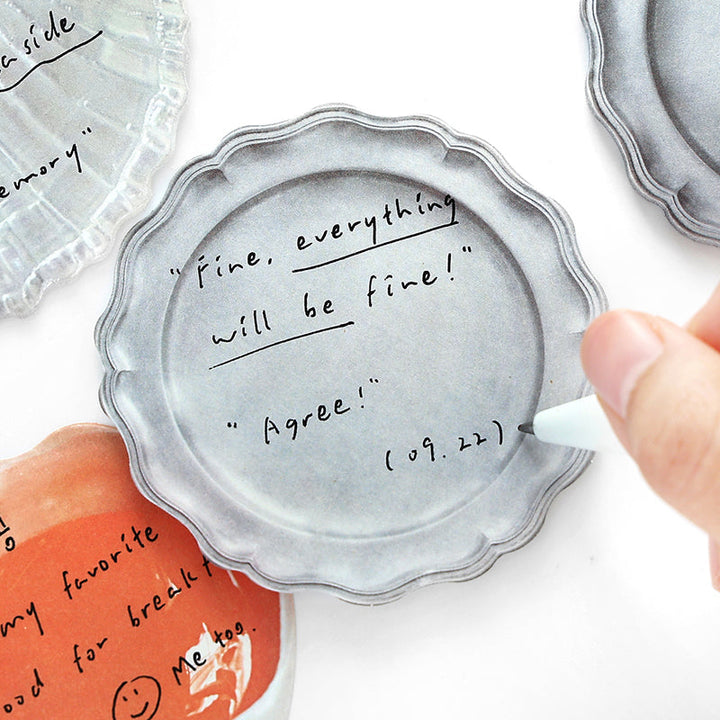 a side
emory"
"Fine, everything
will be fine!"
"Agree!"
(09.22)
my favorite
ood for breakf
Me too.